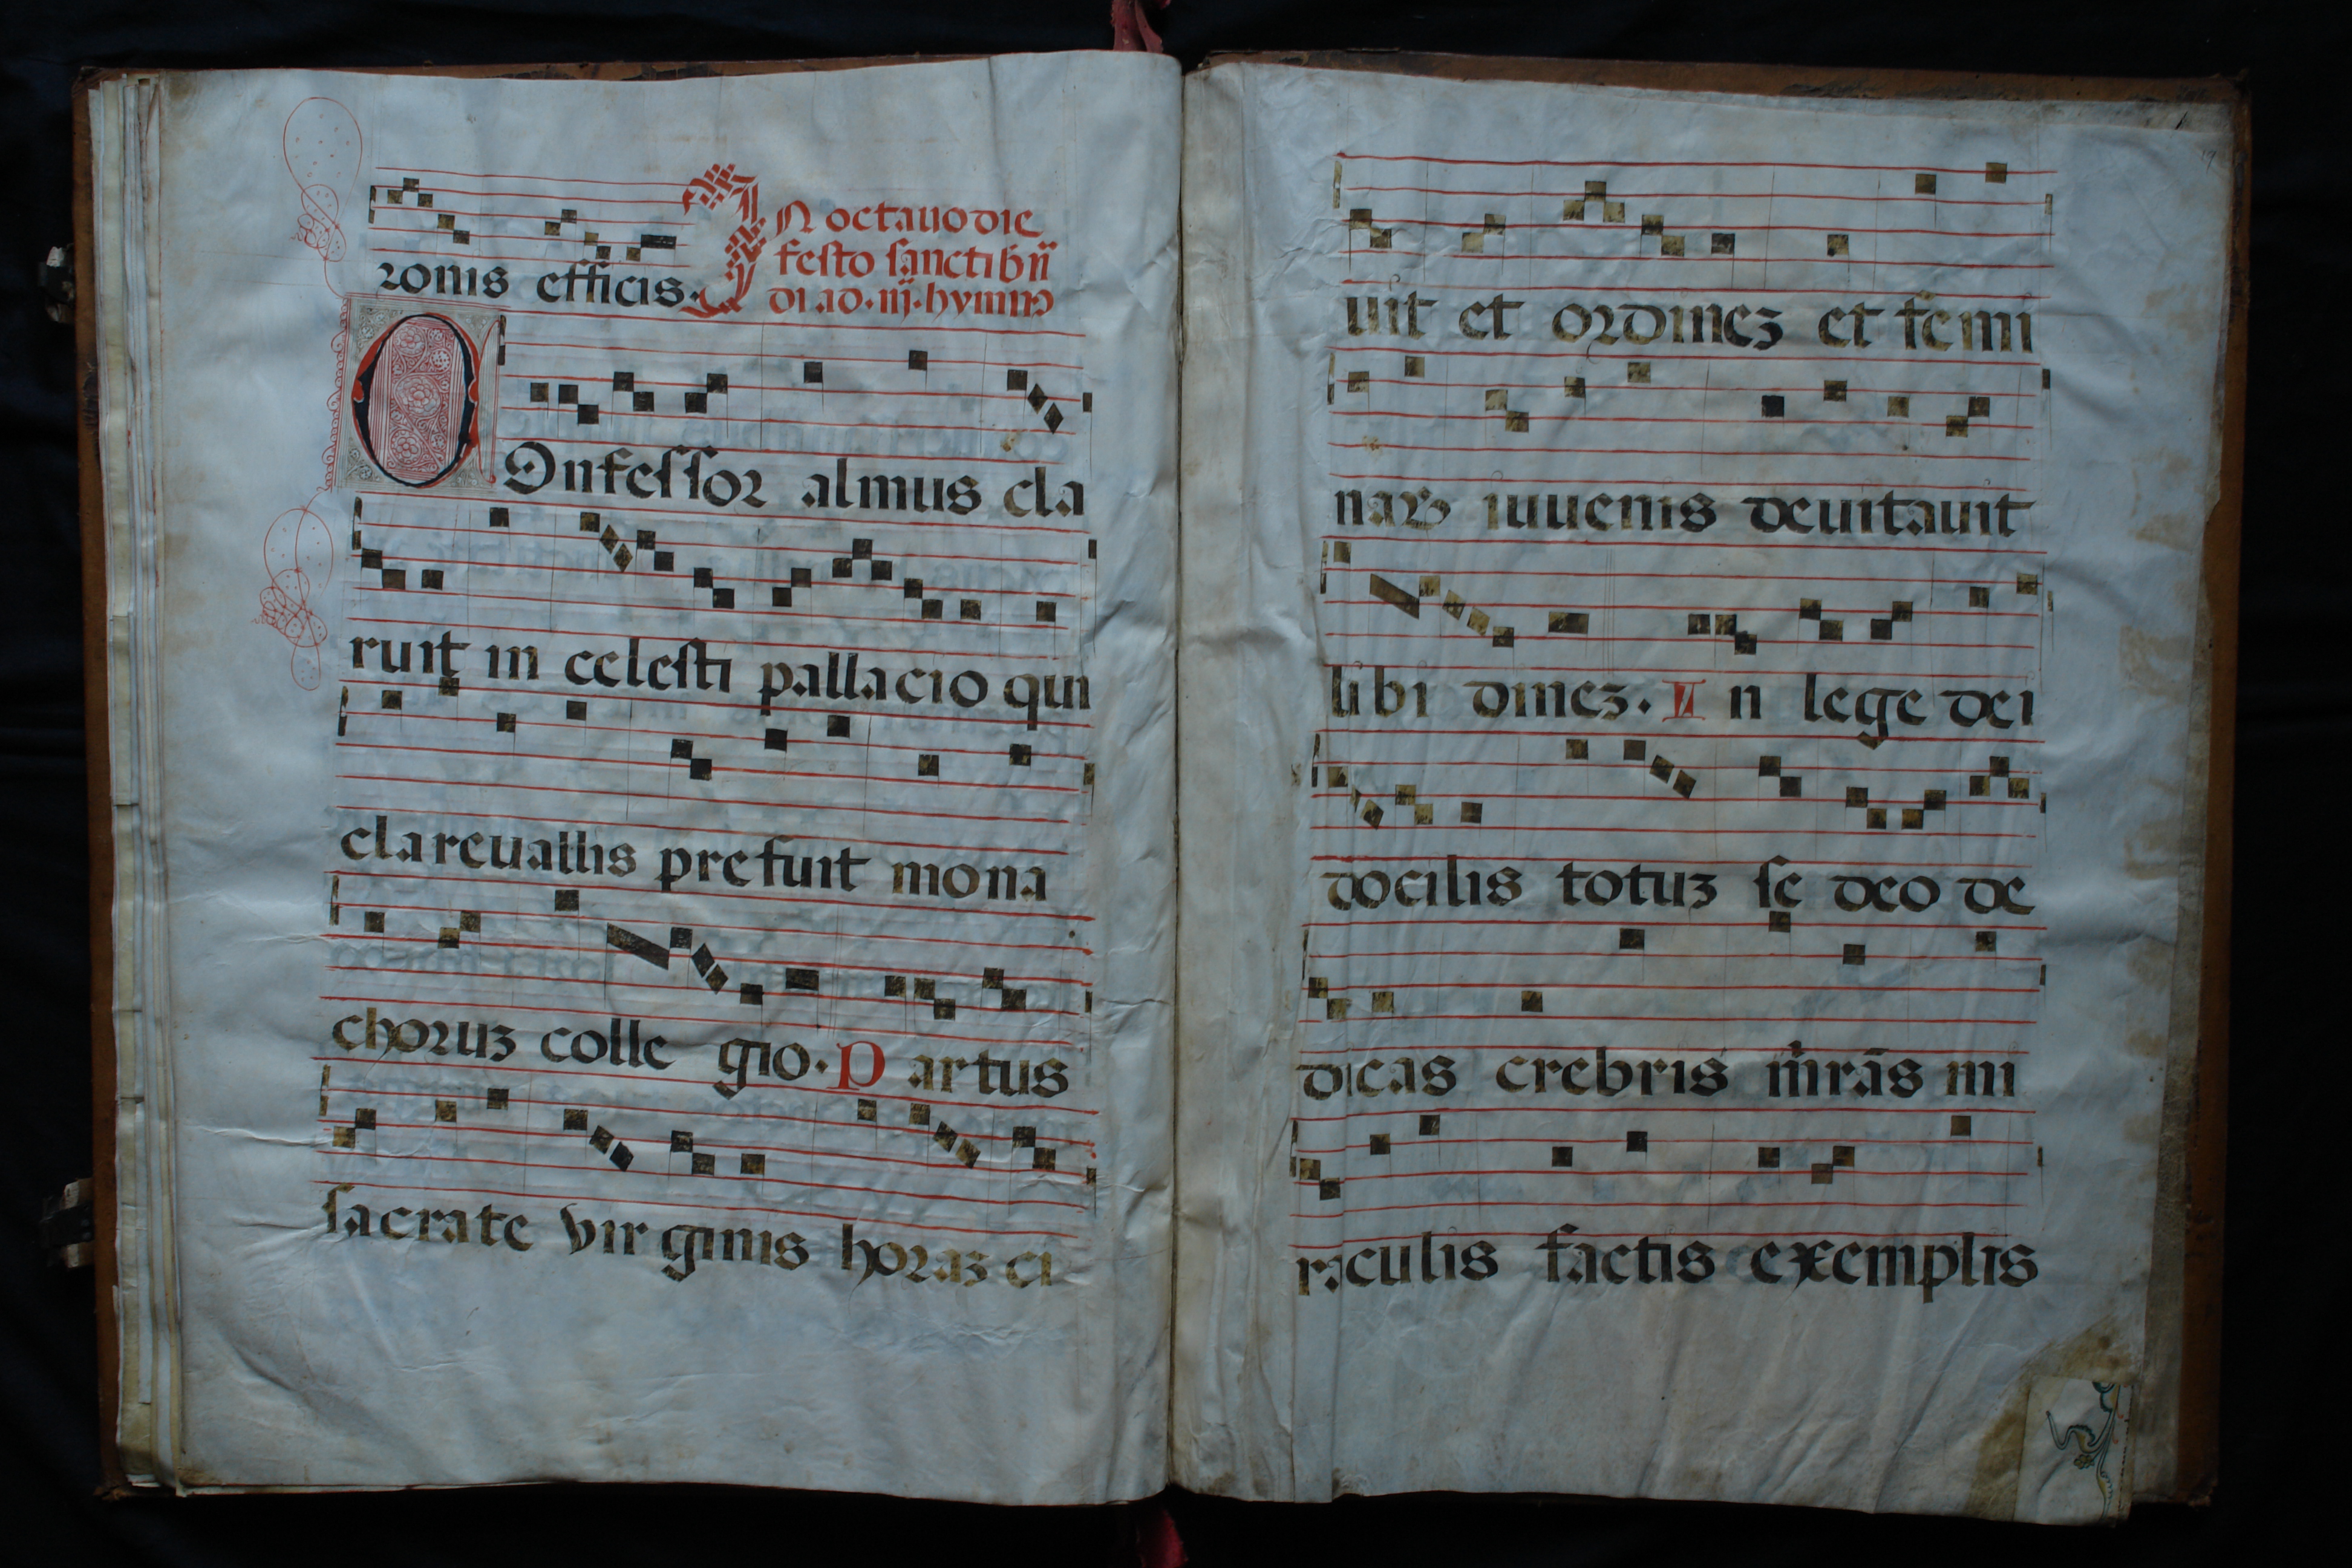 ronis efficis. In octauo die
festo sancti bn̄
di ad. iij. hymno
COnfessor almus cla
ruit in celesti pallacio qui
clareuallis prefuit mona
choruz colle gio. P artus
sacrate virginis horaz ci
uit et ordinez et femi
iuuenis deuitauit
libi dinez. I n lege dei
docilis totuz se deo de
dicas crebris mirās mi
raculis factis exemplis